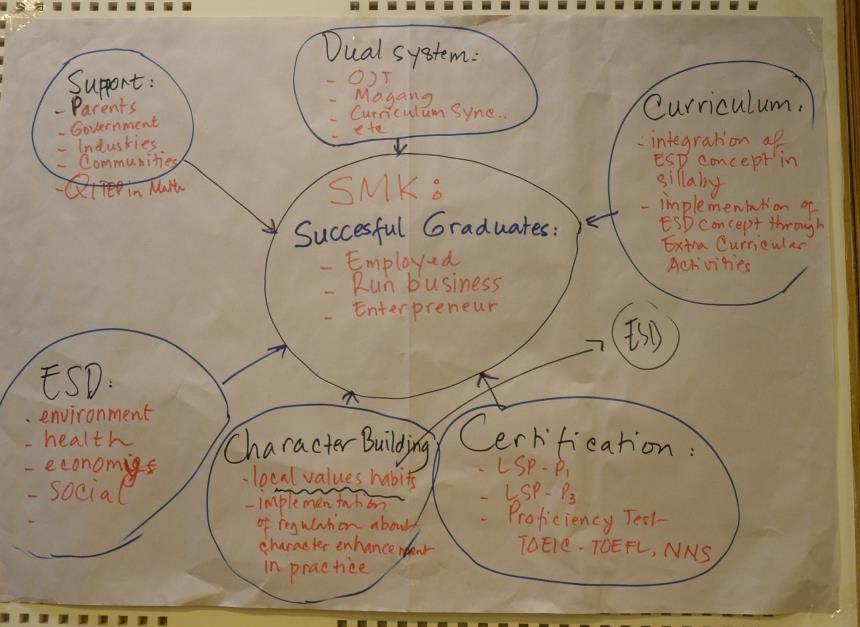 Support:
- Parents
- Government
- Industries
- Communities
- QITEP in Math
Dual system:
- OJT
- Magang
- Curriculum Sync..
- etc
Curriculum:
- integration of
ESD concept in
sillaby
- implementation of
ESD concept through
Extra Curricular
Activities
SMK:
Succesful Graduates:
- Employed
- Run business
- Enterpreneur
ESD
ESD:
- environment
- health
- economics
- social
-
Character Building
- local values habits
- implementation
of regulation about
character enhancement
in practice
Certification:
- LSP - P1
- LSP - P3
- Proficiency Test
TOEIC - TOEFL, NNS